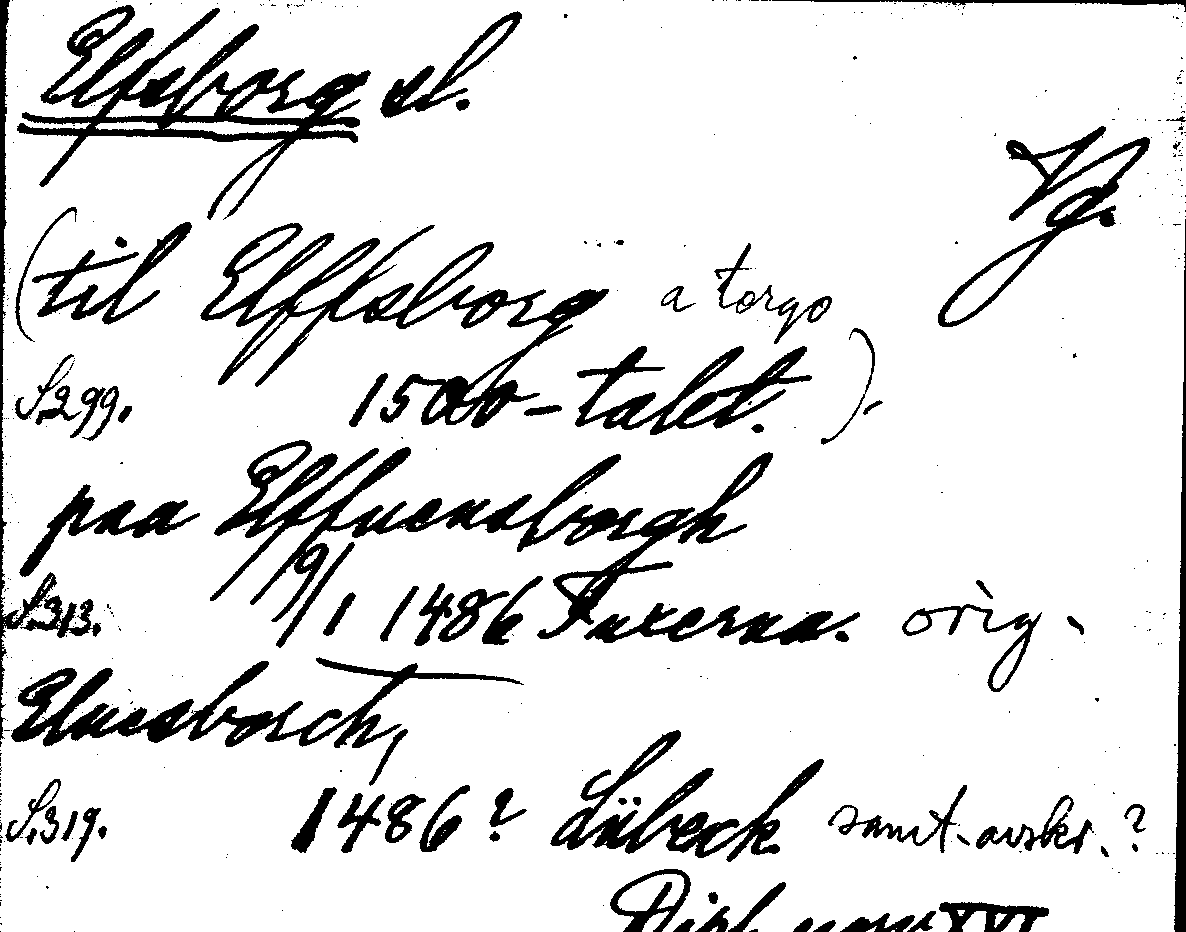 Elfsborg sl.
Vg.
(til Elffsborg a tergo
S.299. 1500-talet.).
paa Elffuensborgh
S.313. 19/1 1486 Fuxerna. orig.
Eluesborch,
S.319. 1486? Lübeck. samt. avskr.?
Dipl. norv XVI